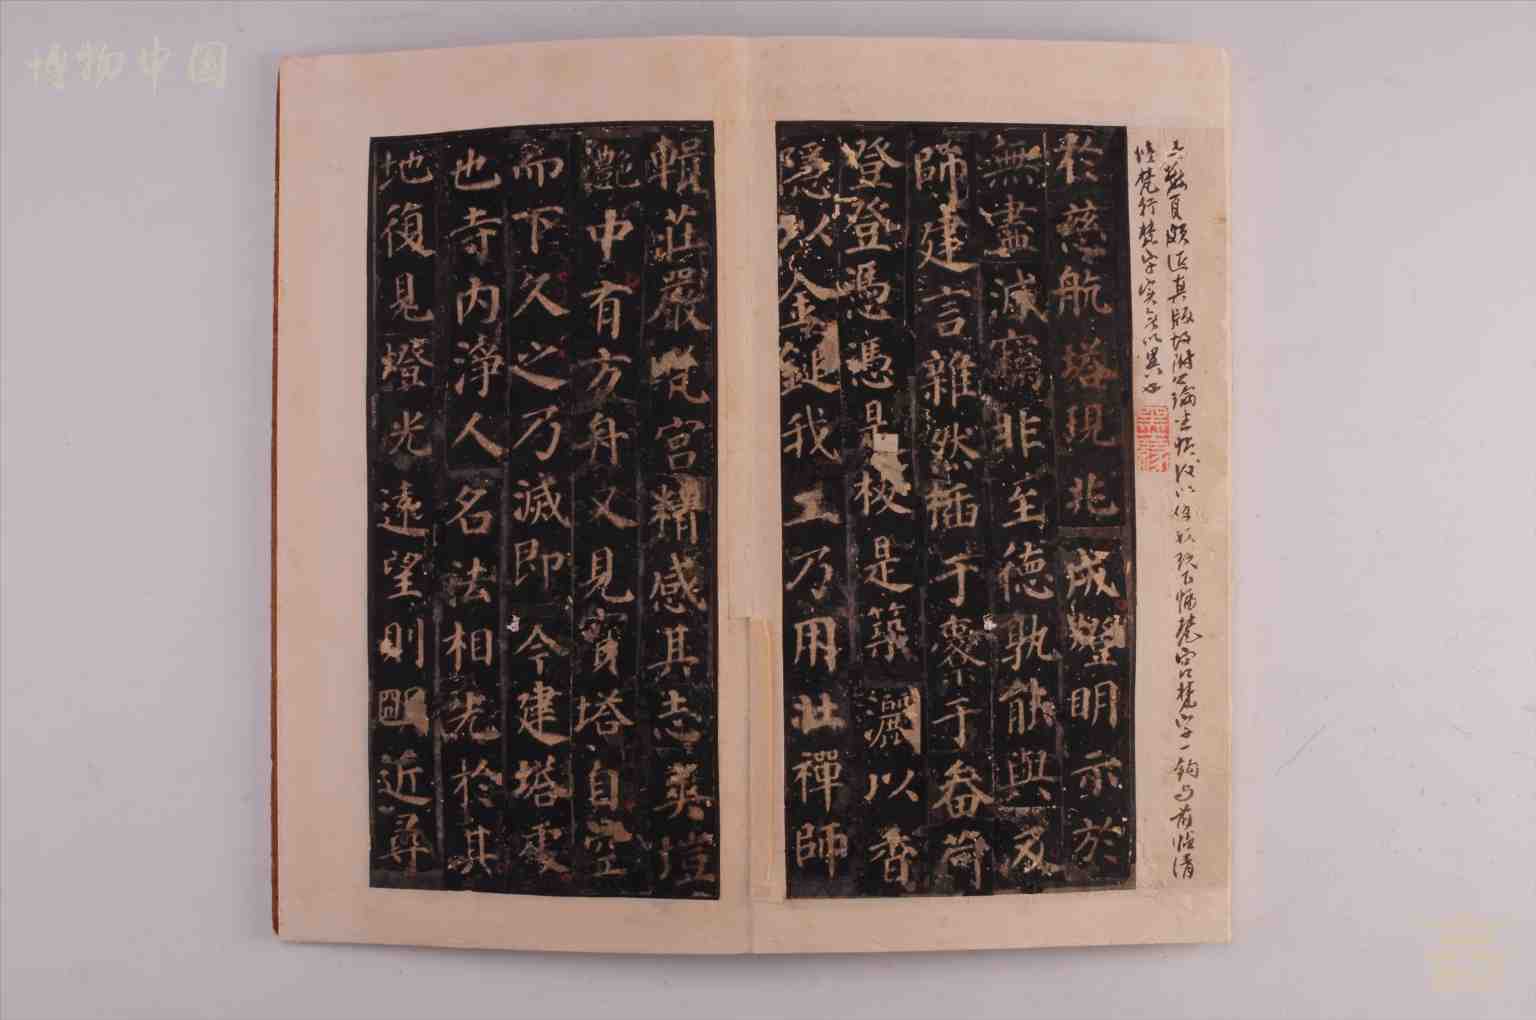 博物中国
梵行梵字實無以異也
於慈航塔現兆成燈明示於
無盡滅竊非至德孰能與及
師建言雜然插于橐于畚荷
登登憑憑是板是築灑以香
隱以金鎚我工乃用壯禪師
輯莊嚴梵宮精感其志爽塏
灔中有方舟又見寶塔自空
而下久之乃滅即今建塔處
也寺内淨人名法相先於其
地復見燈光遠望則朙近尋